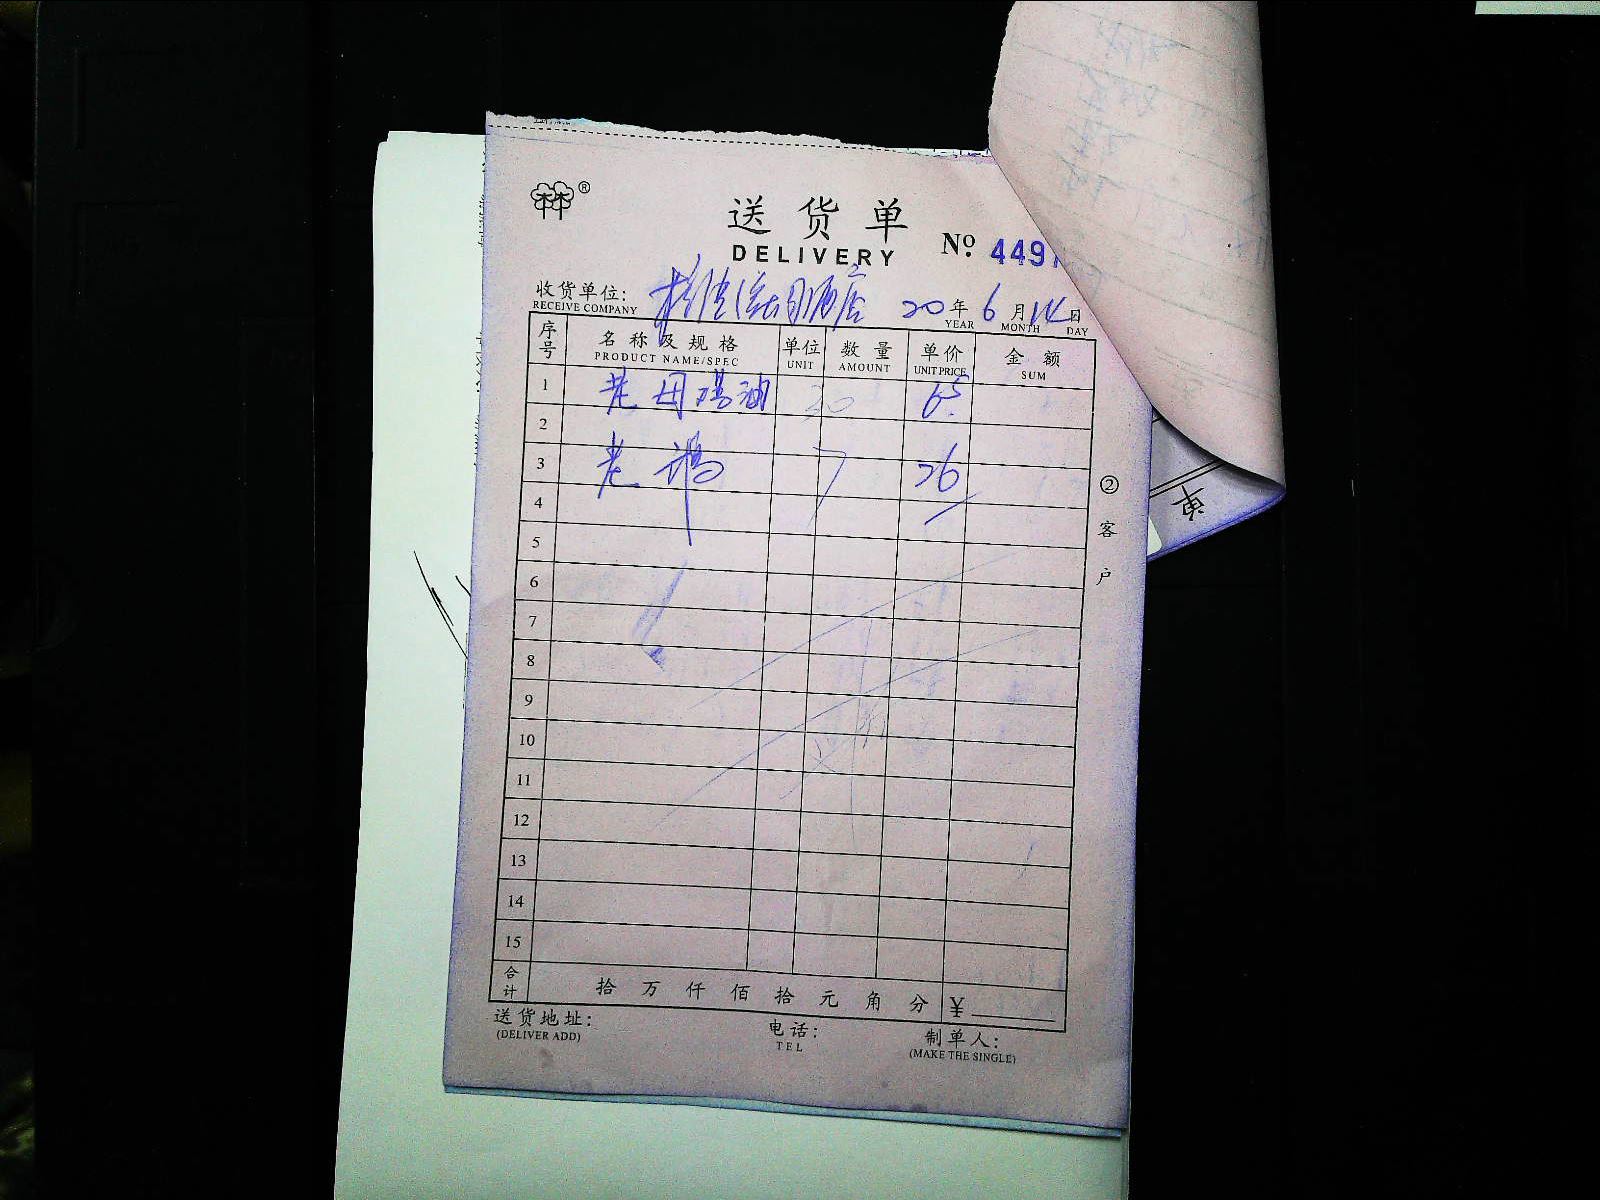 送货单
DELIVERY
№ 4491
收货单位: 酒店 20年6月14日
RECEIVE COMPANY YEAR MONTH DAY
序号 名称及规格 单位 数量 单价 金额
PRODUCT NAME/SPEC UNIT AMOUNT UNIT PRICE SUM
1 老母鸡油 20 65
2
3 老鸡 7 26
4
5
6
7
8
9
10
11
12
13
14
15
合计 拾 万 仟 佰 拾 元 角 分 ¥
送货地址: 电话: 制单人:
(DELIVER ADD) TEL (MAKE THE SINGLE)
②客户
单